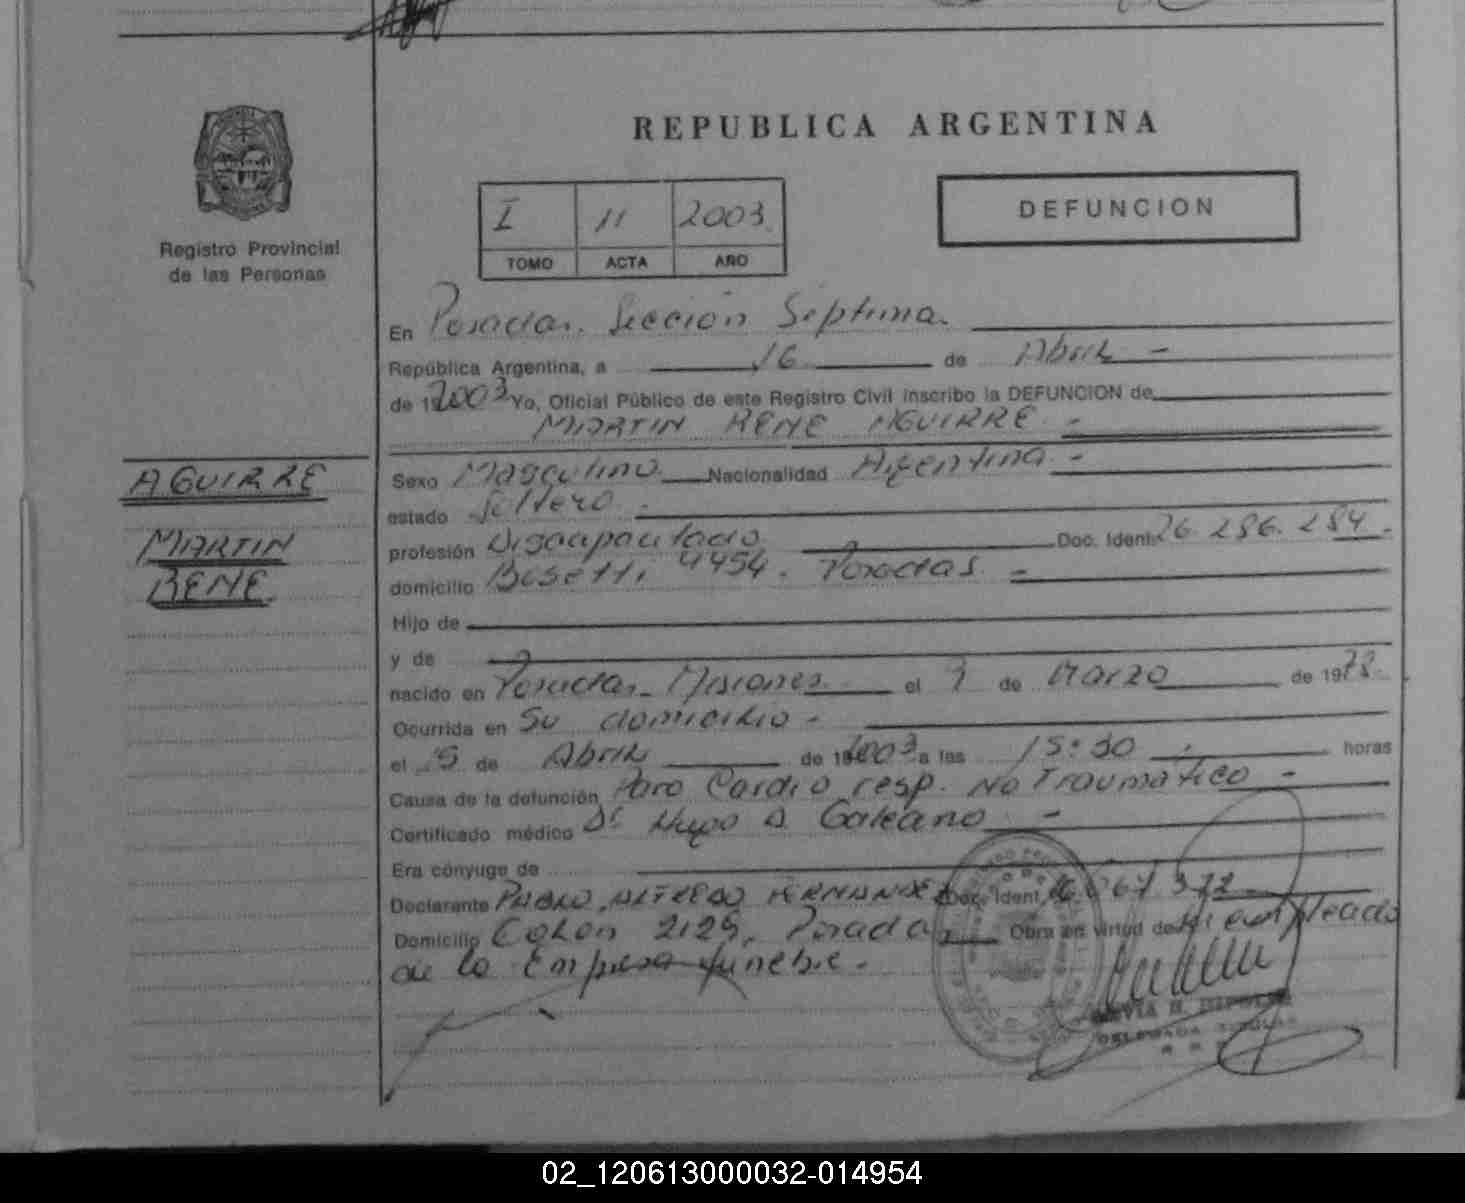 REPUBLICA ARGENTINA
Registro Provincial
de las Personas
I 11 2003
TOMO ACTA AÑO
DEFUNCION
En Posadas. Sección Séptima.
República Argentina, a 16 de Abril -
de 192003 Yo, Oficial Público de este Registro Civil inscribo la DEFUNCION de
MARTIN RENE AGUIRRE -
AGUIRRE
MARTIN
RENE
Sexo Masculino Nacionalidad Argentina -
estado Soltero -
profesión Discapacitado Doc. Ident. 26.286.284.
domicilio Bosetti 4454. Posadas -
Hijo de
y de
nacido en Posadas - Misiones el de Marzo de 1978.
Ocurrida en Su domicilio -
el de Abril de 2003 a las 15:30 horas
Causa de la defunción Paro Cardio resp. No Traumático -
Certificado médico Dr Hugo D. Galeano -
Era cónyuge de
Declarante PABLO ALFREDO Doc. Ident.
Domicilio Colon 2125, Posadas Obra en virtud de empleado
de la Empresa fúnebre.
02_120613000032-014954